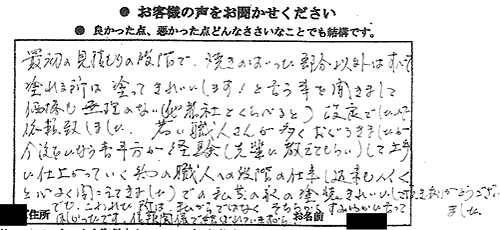 ● お客様の声をお聞かせください
● 良かった点、悪かった点どんなささいなことでも結構です。
最初の見積もりの段階で、焼きのはいった部分以外はすべて
塗れる所は塗ってきれいします!と言う事を聞きまして
価格も無理のない(他社とくらべると)設定でしたので
依頼致しました。若い職人さんが多くおどろきましたが
今後を担なう若手方が経験(先輩に教えてもらい)して上手
に仕上がっていく物の職人への段階の仕事(近来も人々
と心よく聞こえてきました)での私共の家の塗装きれいにして頂き有がとうござい
でも、こわれた所は、私からではなく そちらから すみやかに言って ました。
ほしかったです。信頼関係で
ご住所
お名前